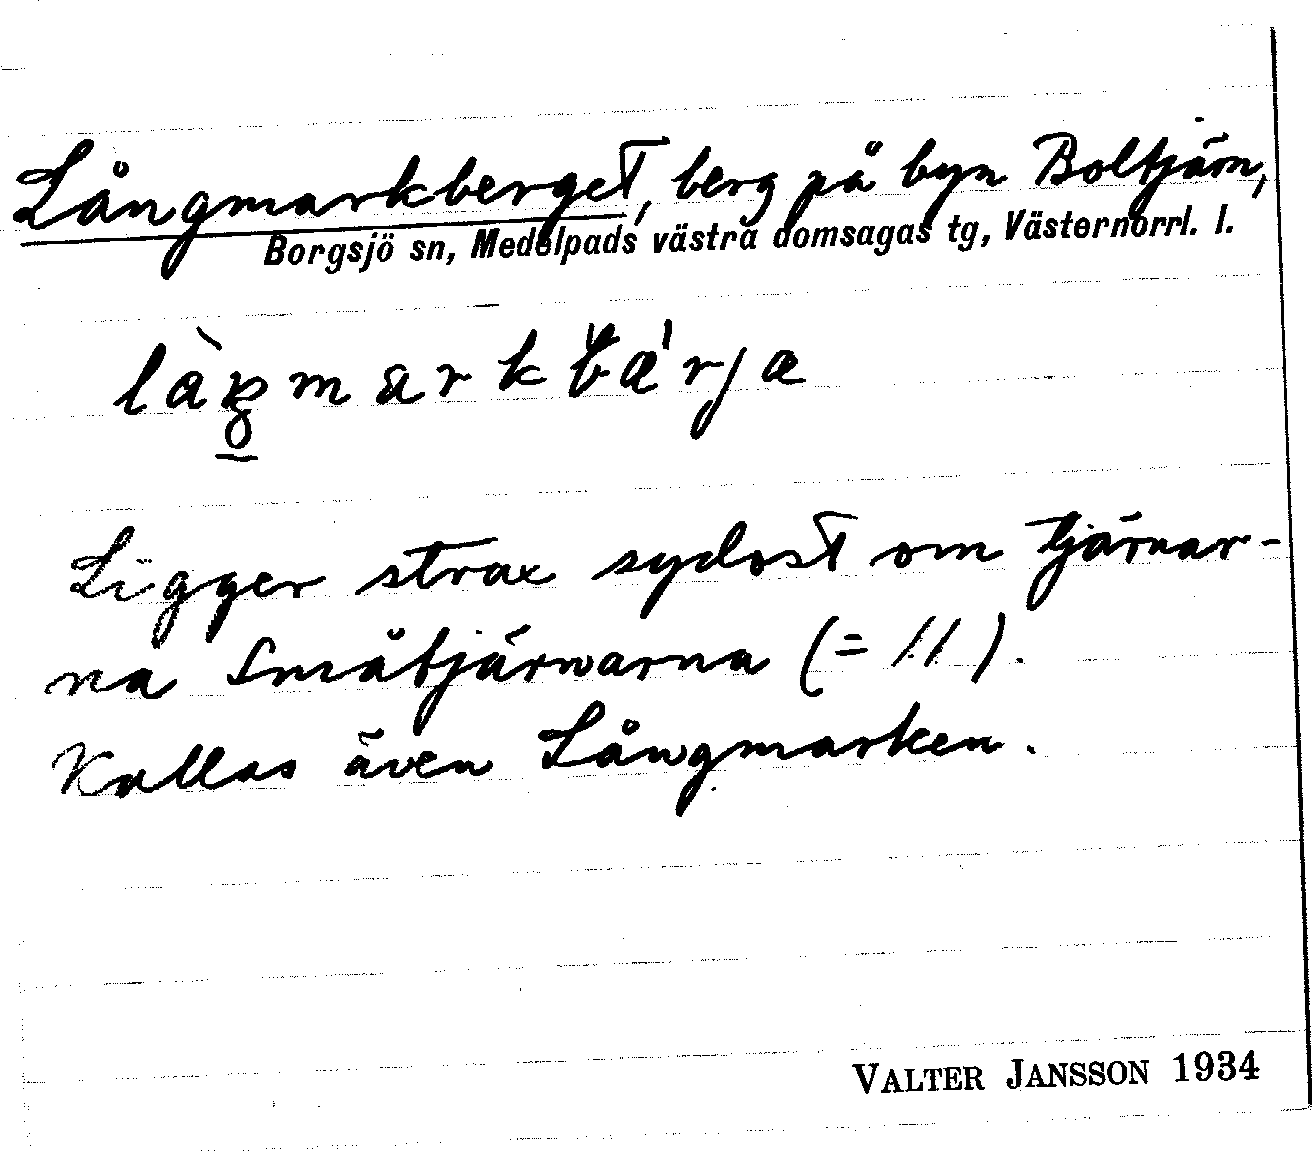 Långmarkberget, berg på byn Boltjärn,
Borgsjö sn, Medelpads västra domsagas tg, Västernorrl. l.
Ligger strax sydost om tjärnar-
na Småtjärnarna (= 11).
Kallas även Långmarken.
VALTER JANSSON 1934